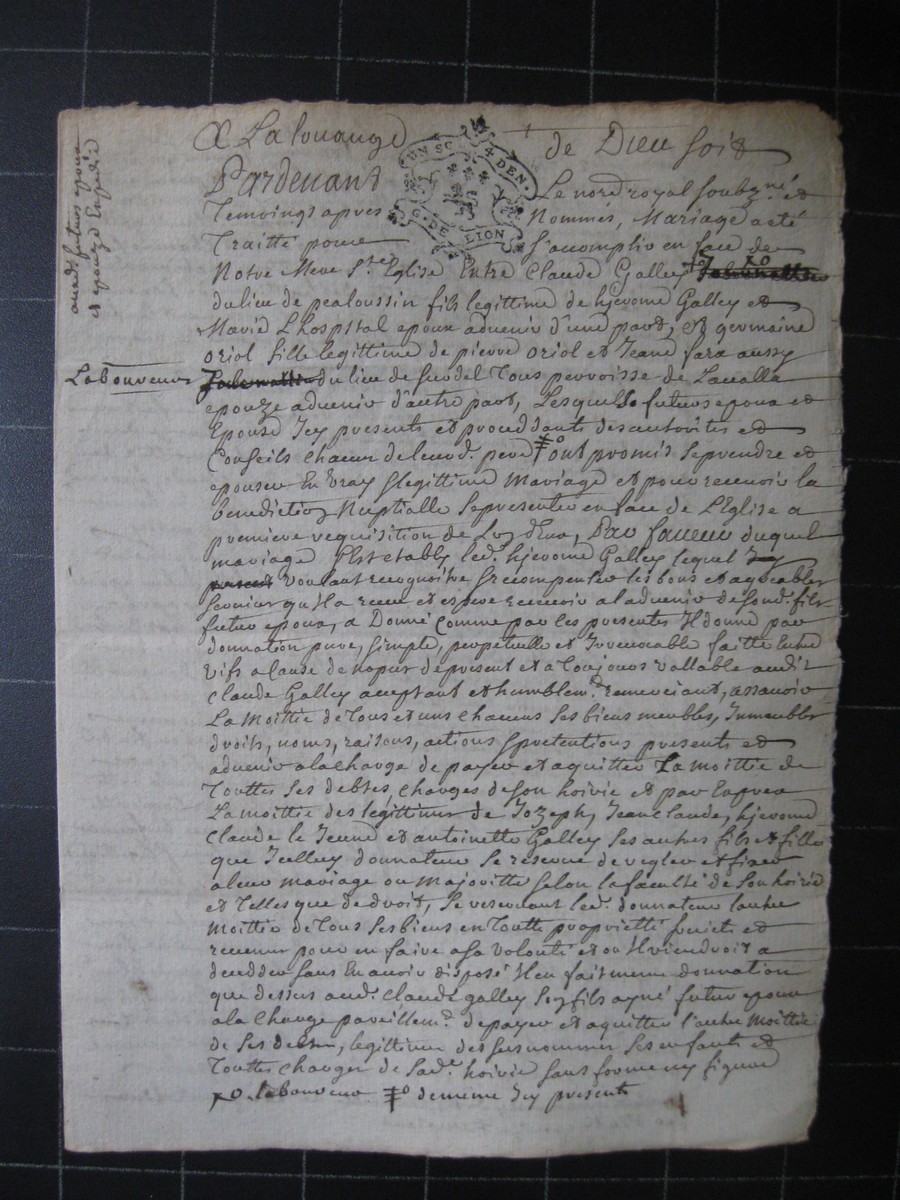 A La louange de Dieu soit
Pardevant Le no.re royal soubz.né et
Temoings apres Nommés, Mariage a eté
Traitté pour s'accomplir en face de
Notre Mere S.te Eglise Entre Claude Galley ꝉo
du lieu de pealoussin fils legittime de hjerome Galley et
Marie Lhospital epoux advenir d'une part, Et germaine
oriol fille legittime de pierre oriol et Jeane fara aussy
Labouveur du lieu de Tous perroisse de Lavalla
epouze advenir d'autre part, Lesquels futurs epoux et
Epouse Icy presents et proceddants des autorites et
Conseils chacun de leurd. pere ǂo ont promis se prendre et
epouser En vray & legittime mariage et pour recevoir la
benediction Nuptialle se presenter en face de L'Eglise a
premiere requisition de L'un d'Eux, Par faveur duquel
mariage s'Est etably led. hjerome Galley lequel Icy
present voulant recognoitre & recompenser les bons et agreables
services qu'il a receu et espere recevoir a l'advenir de sond. fils
futur epoux, a Donné comme par les presentes Il donne par
donnation pure, simple, perpetuelle et Irrevocable faitte Entre
vifs a cause de nopces des present et a Toujours vallable audit
Claude Galley aceptant et humblem.t remerciant, assavoir
La Moittie de Tous et uns chacuns ses biens meubles, Immeubles
droits, noms, raisons, actions & pretentions presents et
advenir a la charge de payer et aquitter La moittie de
Touttes ses debtes, charges de son hoirie et par Expres
La moittie des legittimes de Jozeph, Jean Claude, hjerome
Claude le Jeune et antoinette Galley ses autres fils et fille
que Icelluy donnateur se reserve de regler et fixer
a leur mariage ou Majoritte selon la faculté de son hoirie
et Telles que de droit, se reservant led. donnateur l'autre
moittie de Tous ses biens en Toutte proprietté fruits et
revenus pour en faire a sa volonté et ou Il viendroit a
decedder sans En avoir disposé Il en fait meme donnation
que dessus aud. Claude galley son fils ayné futur epoux
a la charge pareillem.t de payer et aquitter l'autre Moittie
de ses debtes, legittimes des susnommes ses enfants et
Touttes charges de sad. hoirie sans forme ny figure
ꝉo labouveur ǂo de meme Icy presents
aud. futurs epoux
et epouze Expedié